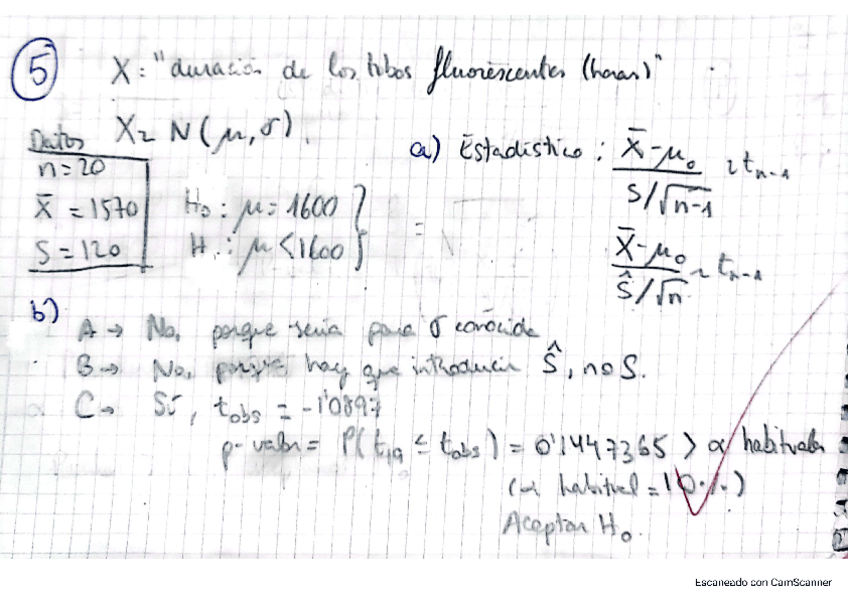 5 X = "duración de los tubos fluorescentes (horas)"
Datos X ~ N(μ, σ).
n = 20
X̄ = 1570
S = 120
H₀ : μ = 1600
H₁ : μ < 1600
a) Estadístico : X̄ - μ₀ / S/√n-1 ~ t n-1
X̄ - μ₀ / Ŝ/√n ~ t n-1
b)
A → No, porque sería para σ conocida
B → No, porque hay que introducir Ŝ, no S.
C → Sí, t obs = -1'0897
p-valor = P(t₁₉ ≤ t obs) = 0'1447365 > α habituales
(α habitual = 10%)
Aceptar H₀.
Escaneado con CamScanner